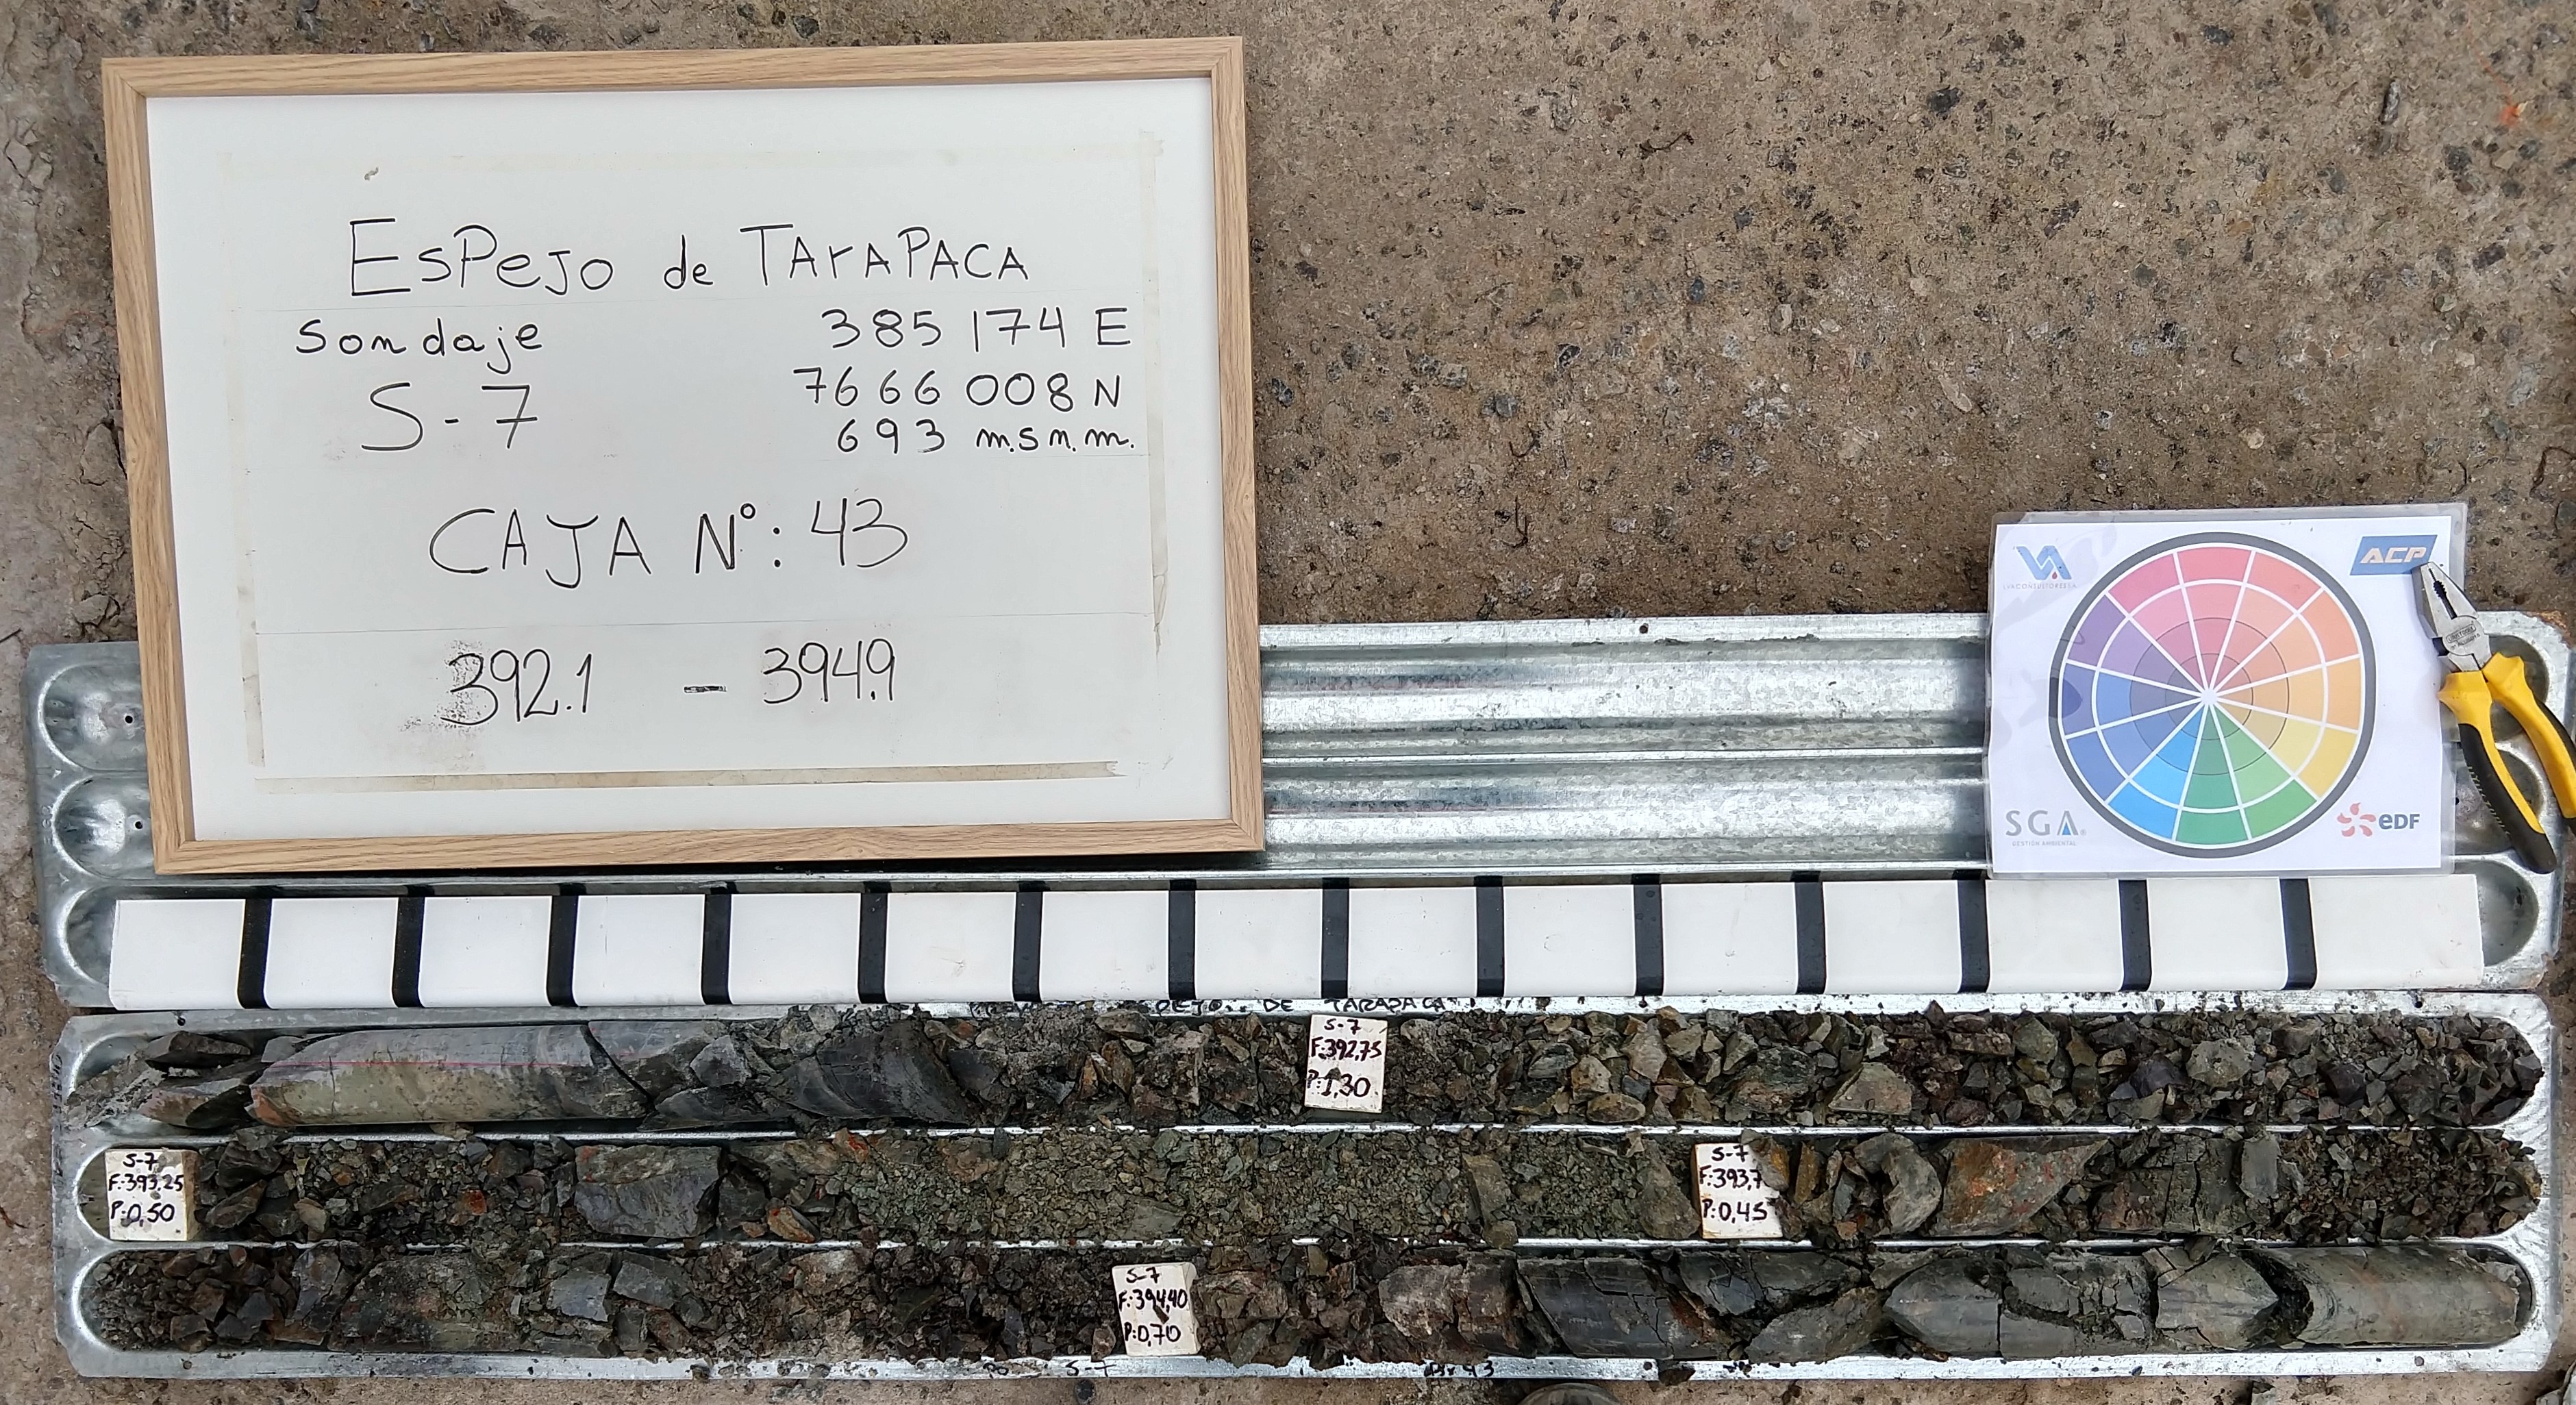 EsPeJo de TArAPACA
Sondaje
385 174 E
S-7
7666 008 N
693 m.s.n.m.
CAJA N°: 43
392.1 - 394.9
ACP
SGA
GESTIÓN AMBIENTAL
eDF
DE TARAPACA
S-7
F:392,75
P:1,30
S-7
F:393,25
P:0,50
S-7
F:393,7
P:0,45
S-7
F:394,40
P:0,70
S-7